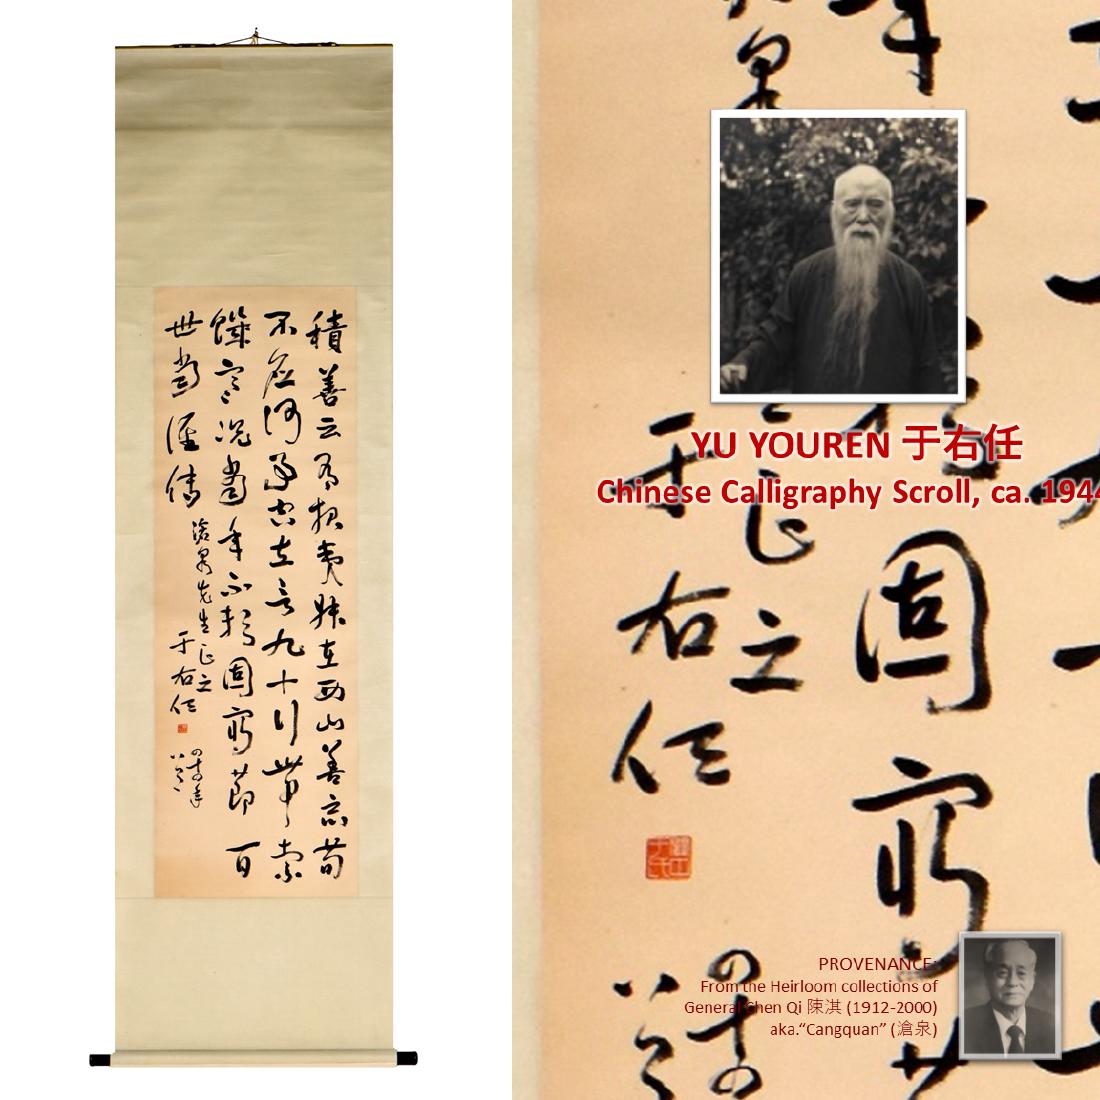 積善云有報夷叔在西山善惡苟
不應何事空立言九十行帶索
饑寒況當年不賴固窮節百
世當誰傳
滄泉先生正之
于右任
YU YOUREN 于右任
Chinese Calligraphy Scroll, ca. 1944
正之
于右任
固窮
PROVENANCE:
From the Heirloom collections of
General Chen Qi 陳淇 (1912-2000)
aka.“Cangquan” (滄泉)